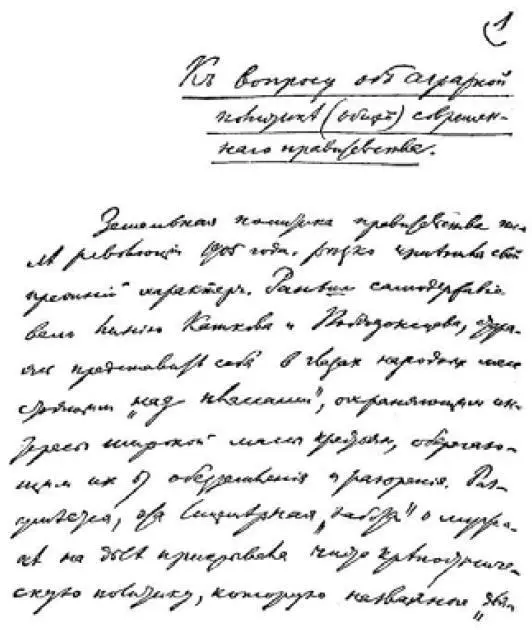 1
Къ вопросу объ аграрной
политике (общей) современ-
наго правительства.
Земельная политика правительства пос-
ле революции 1905 года резко изменила свой
прежний характер. Раньше самодержавие
вело линию Каткова и Победоносцева, стара-
ясь представить себя в глазах народных масс
стоящим „над классами", охраняющим ин-
тересы широкой массы крестьян, оберегаю-
щим их от обезземеления и разорения. Раз-
умеется, эта лицемерная „забота" о мужи-
ке на деле прикрывала чисто крепостниче-
скую политику, которую названные „дея-